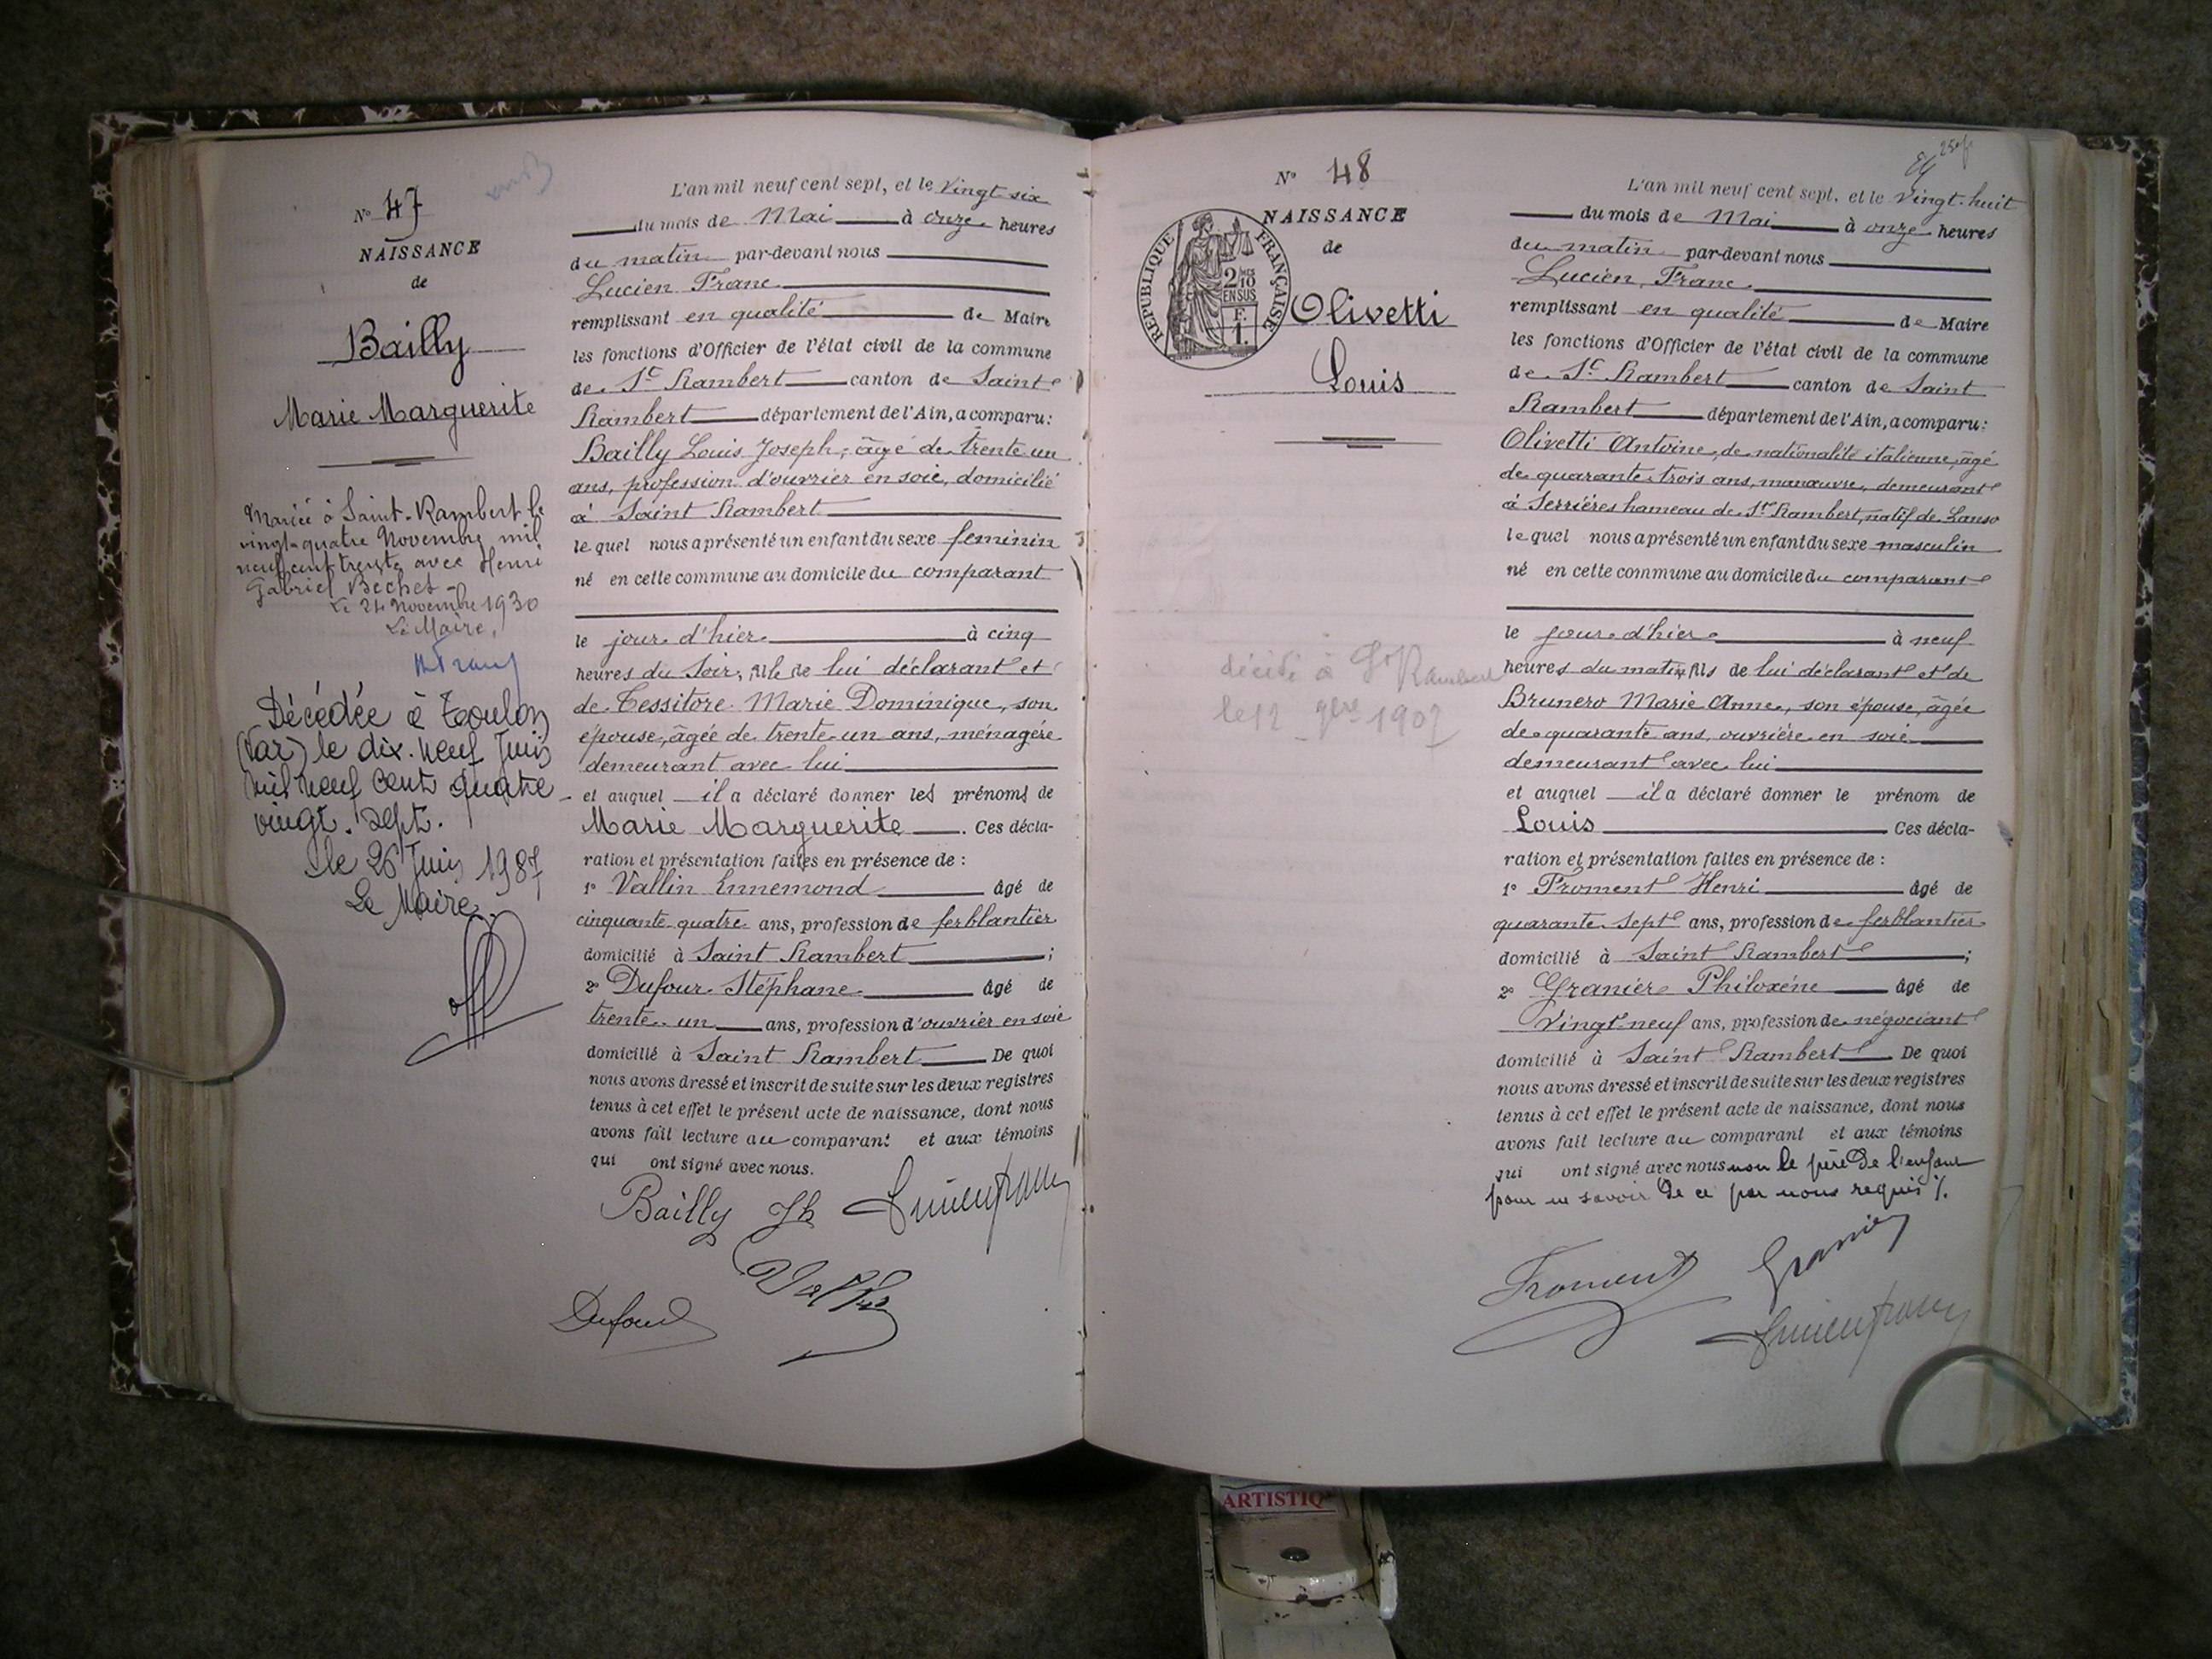 N° 47
NAISSANCE
de
Bailly
Marie Marguerite
Mariée à Saint-Rambert le
vingt-quatre Novembre mil
neuf cent trente avec Henri
Gabriel Bechet
Le 24 Novembre 1930
Le Maire,
Décédée à Toulon
(Var) le dix-neuf Juin
mil neuf cent quatre
vingt-sept.
le 26 Juin 1987
Le Maire
L'an mil neuf cent sept, et le vingt-six
du mois de Mai à onze heures
du matin par-devant nous
Lucien Franc
remplissant en qualité de Maire
les fonctions d'Officier de l'état civil de la commune
de St Rambert canton de Saint
Rambert département de l'Ain, a comparu:
Bailly Louis Joseph, âgé de trente un
ans, profession d'ouvrier en soie, domicilié
à Saint Rambert
lequel nous a présenté un enfant du sexe feminin
né en cette commune au domicile du comparant
le jour d'hier à cinq
heures du Soir, fille de lui déclarant et
de Tessitore Marie Dominique, son
épouse, âgée de trente-un ans, ménagère
demeurant avec lui
et auquel il a déclaré donner les prénoms de
Marie Marguerite . Ces décla-
ration et présentation faites en présence de :
1° Vallin Ennemond âgé de
cinquante-quatre ans, profession de ferblantier
domicilié à Saint Rambert ;
2° Dufour Stéphane âgé de
trente-un ans, profession d'ouvrier en soie
domicilié à Saint Rambert De quoi
nous avons dressé et inscrit de suite sur les deux registres
tenus à cet effet le présent acte de naissance, dont nous
avons fait lecture au comparant et aux témoins
qui ont signé avec nous.
Bailly Jh Lucien franc
Vallin
Dufour
N° 48
NAISSANCE
de
REPUBLIQUE FRANÇAISE
2/10
EN SUS
F.
1.
Olivetti
Louis
décédé à St Rambert
le 12 9bre 1907
L'an mil neuf cent sept, et le vingt-huit
du mois de Mai à onze heures
du matin par-devant nous
Lucien Franc
remplissant en qualité de Maire
les fonctions d'Officier de l'état civil de la commune
de St Rambert canton de Saint
Rambert département de l'Ain, a comparu:
Olivetti Antoine, de nationalité italienne, âgé
de quarante-trois ans, manœuvre, demeurant
à Serrières hameau de St Rambert, natif de Lanso
lequel nous a présenté un enfant du sexe masculin
né en cette commune au domicile du comparant
le jour d'hier à neuf
heures du matin, fils de lui déclarant et de
Brunero Marie Anne, son épouse, âgée
de quarante ans, ouvrière en soie
demeurant avec lui
et auquel il a déclaré donner le prénom de
Louis Ces décla-
ration et présentation faites en présence de :
1° Froment Henri âgé de
quarante-sept ans, profession de ferblantier
domicilié à Saint Rambert ;
2° Granier Philoxène âgé de
Vingt-neuf ans, profession de négociant
domicilié à Saint Rambert De quoi
nous avons dressé et inscrit de suite sur les deux registres
tenus à cet effet le présent acte de naissance, dont nous
avons fait lecture au comparant et aux témoins
qui ont signé avec nous non le père de l'enfant
pour ne savoir de ce par nous requis %.
Froment Granier
Lucien franc
ARTISTIQ